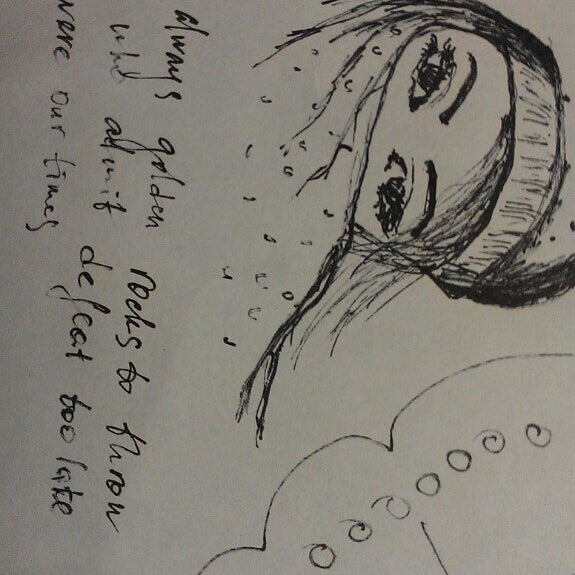 always golden rocks to throw
who admit defeat too late
were our times